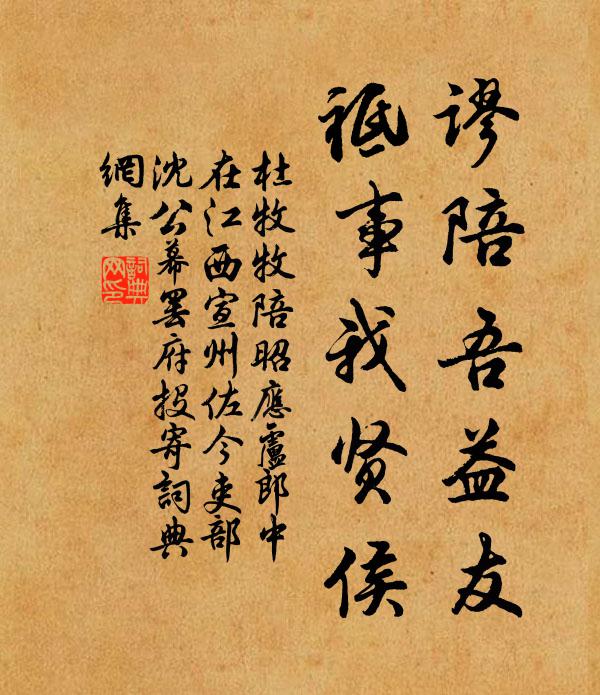 谬陪吾益友
祗事我贤侯
杜牧牧陪昭應盧郎中
在江西宣州佐今吏部
沈公幕罢府投寄詞典
網集
詞典
网印